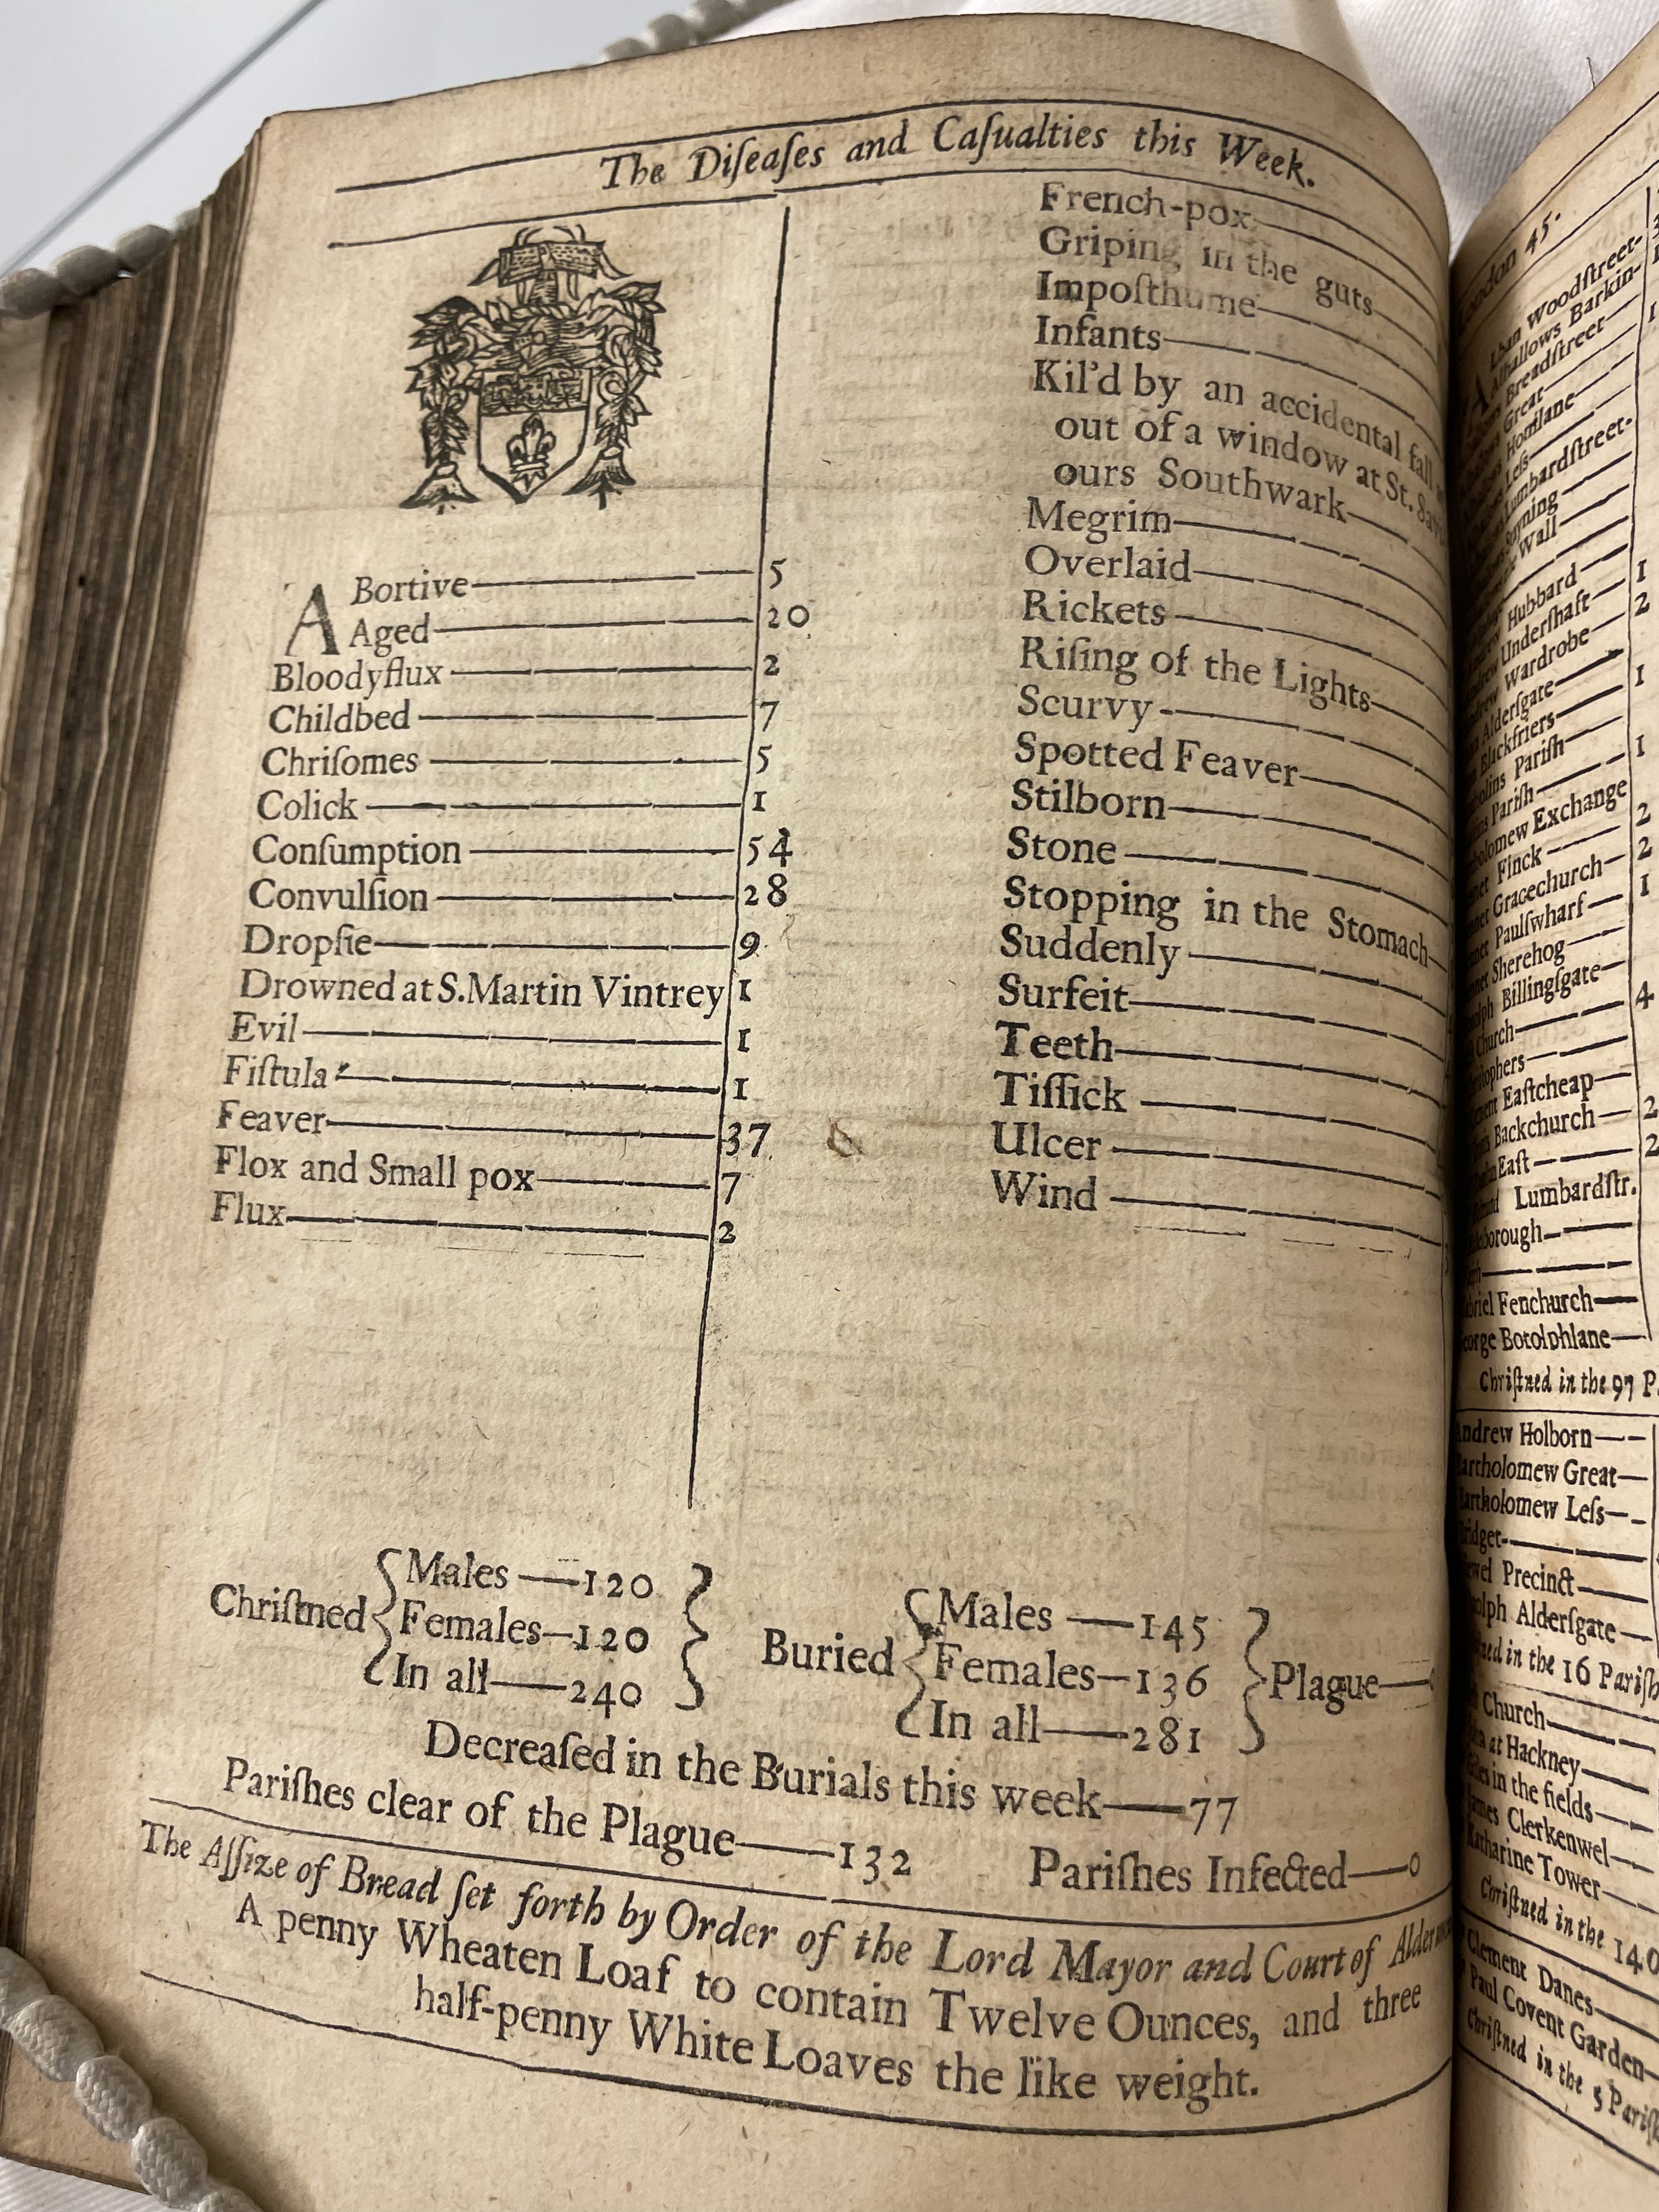 The Diſeaſes and Caſualties this Week.
ABortive 5
Aged 20
Bloodyflux 2
Childbed 7
Chriſomes 5
Colick 1
Conſumption 54
Convulſion 28
Dropſie 9
Drowned at S. Martin Vintrey 1
Evil 1
Fiſtula 1
Feaver 37
Flox and Small pox 7
Flux 2
French-pox
Griping in the guts
Impoſthume
Infants
Kil'd by an accidental fall
out of a window at St. Savi
ours Southwark
Megrim
Overlaid
Rickets
Riſing of the Lights
Scurvy
Spotted Feaver
Stilborn
Stone
Stopping in the Stomach
Suddenly
Surfeit
Teeth
Tiſſick
Ulcer
Wind
Chriſtned
Males 120
Females 120
In all 240
Buried
Males 145
Females 136
In all 281
Plague
Decreaſed in the Burials this week 77
Pariſhes clear of the Plague 132 Pariſhes Infected 0
The Aſſize of Bread ſet forth by Order of the Lord Mayor and Court of
A penny Wheaten Loaf to contain Twelve Ounces, and three
half-penny White Loaves the like weight.
45.
Woodſtreet
Barkin
Breadſtreet
Great
Leſs
Lumbardſtreet
Wall
Hubbard 1
Underſhaft 2
Wardrobe
Alderſgate 1
Blackfriers
Pariſh 1
Pariſh
Exchange 2
Finck 2
Gracechurch 1
Paulſwharf
Sherehog
Billingſgate 4
Church
Eaſtcheap
Backchurch 2
Eaſt 2
Lumbardſtr.
Fenchurch
Botolphlane
Chriſtned in the 97 P
Andrew Holborn
Bartholomew Great
Bartholomew Leſs
Bridget
Precinct
Alderſgate
in the 16 Pariſh
Church
at Hackney
in the fields
James Clerkenwel
Katharine Tower
Chriſtned in the 14
Clement Danes
Paul Covent Garden
Chriſtned in the 5 Pariſh